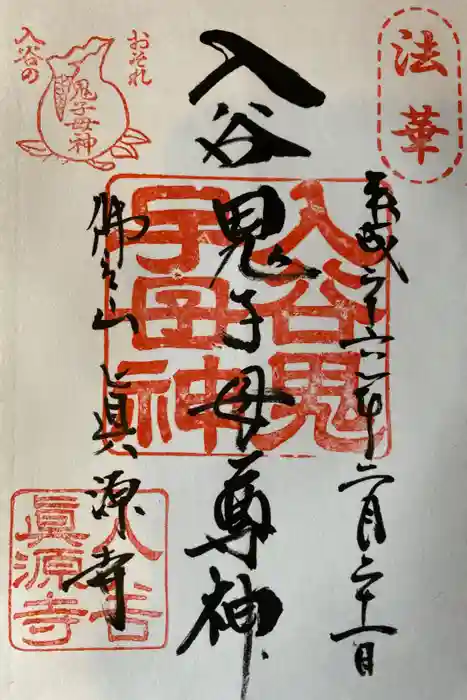 法華
平成二十六年二月二十一日
入谷鬼子母尊神
佛立山 眞源寺
おそれ
入谷の
鬼子母神
入谷鬼
子母神
入谷
眞源寺